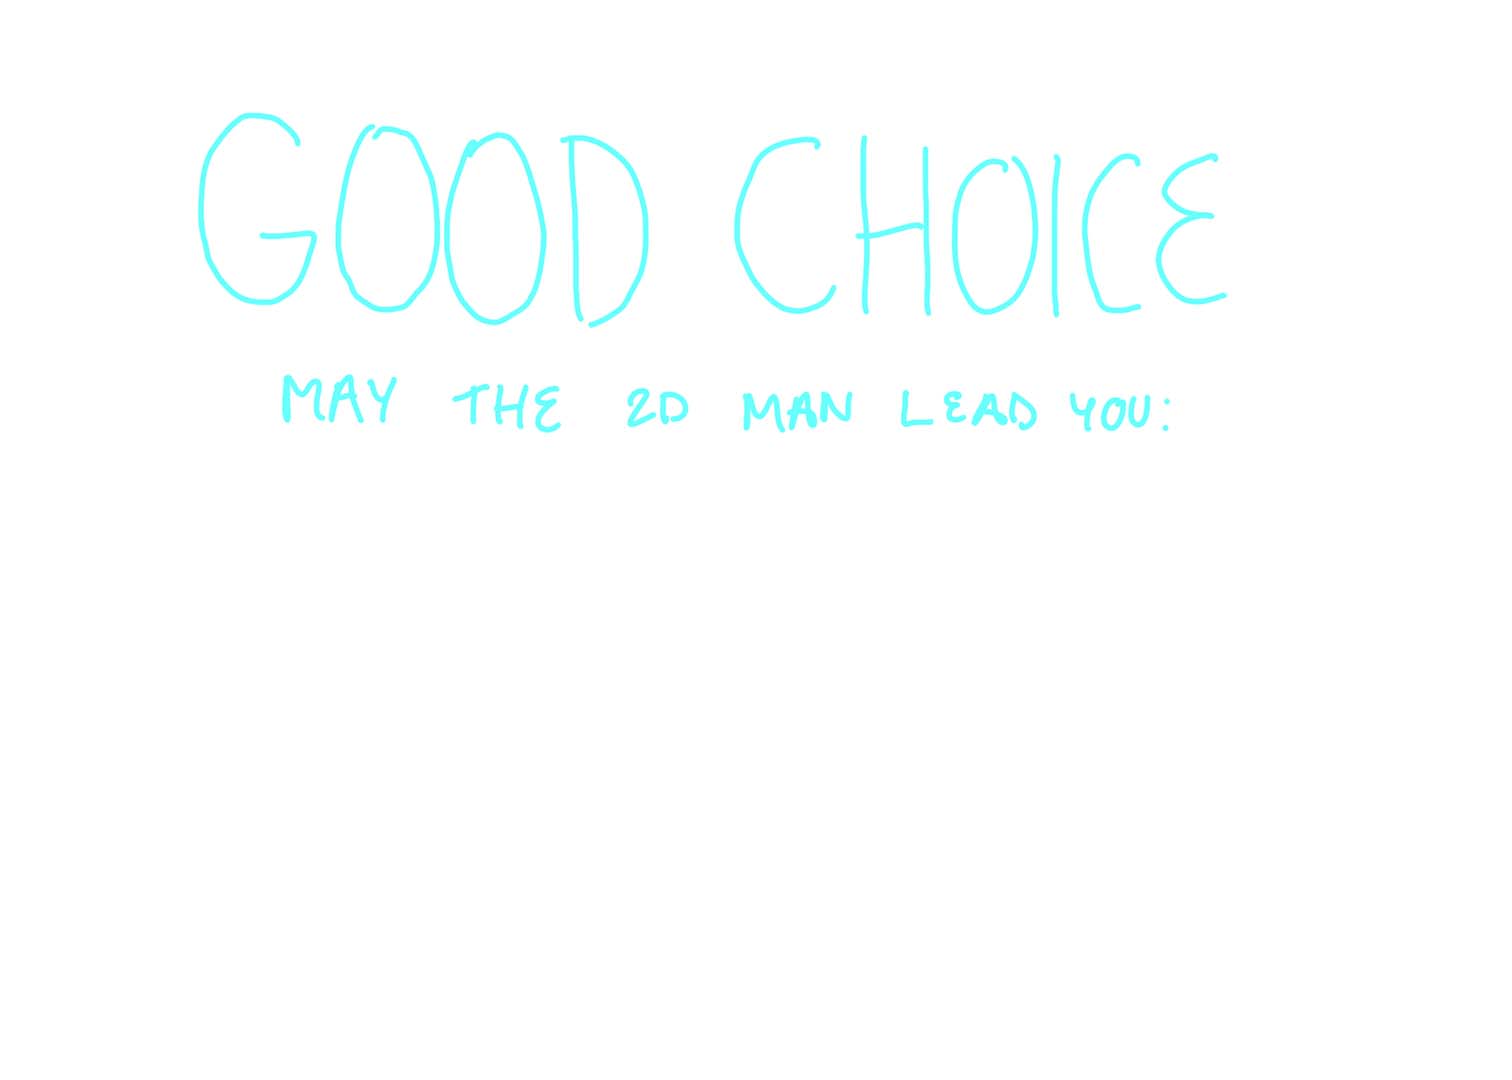 GOOD CHOICE
MAY THE 2D MAN LEAD YOU: